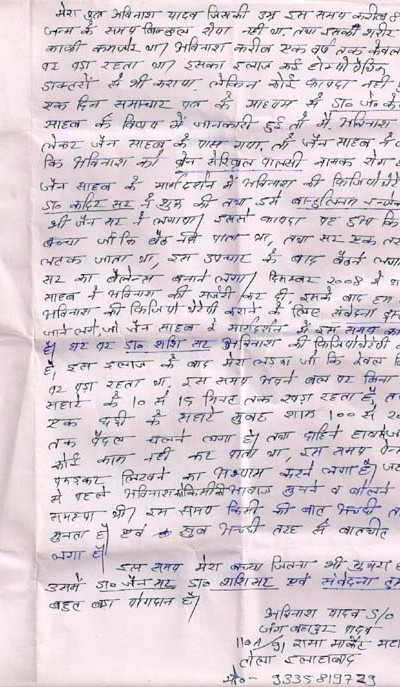 मेरा पुत्र अविनाश यादव जिसकी उम्र इस समय करीब 8
जन्म के समय बिल्कुल रोया नहीं था, तथा इसकी शरीर
काफी कमजोर था। अविनाश करीब एक वर्ष तक केवल
पर पड़ा रहता था। इसका इलाज कई होम्योपैथिक
डाक्टरों से भी कराया, लेकिन कोई फायदा नहीं
एक दिन समाचार पत्र के माध्यम से डा० जे० के०
साहब के विषय में जानकारी हुई तो मैं अविनाश
लेकर जैन साहब के पास गया, तो जैन साहब ने
कि अविनाश को ब्रेन सेरिब्रल पाल्सी नामक रोग
जैन साहब के मार्गदर्शन में अविनाश की फिजियोथेरेपी
डा० सर ने शुरू की तथा उसे
श्री जैन सर ने लगाया। इससे फायदा यह हुआ कि
बच्चा जो कि बैठ नहीं पाता था, तथा सर एक तरफ
लटक जाता था, इस उपचार के बाद बैठने लगा
सर का बैलेन्स बनाने लगा। दिसम्बर 2008 में
साहब ने अविनाश की सर्जरी कर दी, इसके बाद हम
अविनाश की फिजियोथेरेपी कराने के लिए संवेदना
जाने लगे, जो जैन साहब के मार्गदर्शन में इस समय
है। घर पर डा० शशि सर अविनाश की फिजियोथेरेपी
हैं, इस इलाज के बाद मेरा लड़का जो कि केवल
पर पड़ा रहता था, इस समय अपने बल पर बिना
सहारे के 10 से 15 मिनट तक खड़ा रहता है,
एक छड़ी के सहारे सुबह शाम 100 से
तक पैदल चलने लगा है। तथा दाहिने हाथ से
कोई काम नहीं कर पाता था, इस समय पेन
पकड़कर लिखने का अभ्यास करने लगा है।
से पहले अविनाश को किसी की आवाज सुनने व बोलने
समस्या थी। इस समय किसी की बात अच्छी
सुनता है। एवं खूब अच्छी तरह से बातचीत
लगा है।
इस समय मेरा बच्चा जितना भी सुधरा
उसमें डा० जैन सर डा० शशि सर एवं संवेदना
बहुत बड़ा योगदान है।
अविनाश यादव S/o
जंग बहादुर यादव
रामा मार्केट
तोला इलाहाबाद
मो०- 9335819729